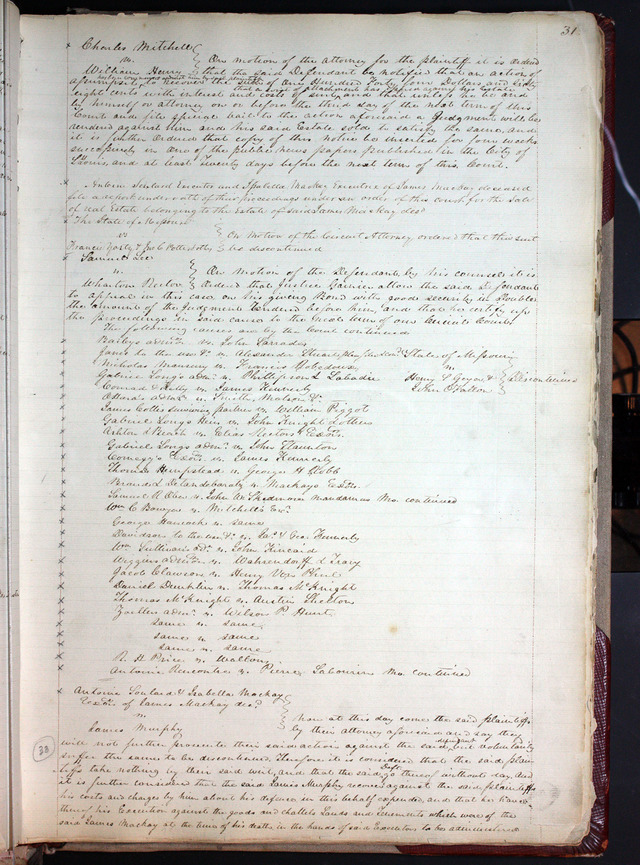 31
Charles Mitchell
vs.
On motion of the attorney for the plaintiff it is ordered
William Henry that the said Defendant be notified that an action of
assumpsit to recover the sum of One Hundred Forty four Dollars and Sixty
that a writ of attachment has issued against his Estate
eight cents with interest and costs of suit, and that unless he be and
by himself or attorney on or before the third day of the next term of this
Court and file special bail to the action aforesaid a Judgment will be
rendered against him and his said Estate sold to satisfy the same, and
it is further ordered that copy of this Notice be inserted for four weeks
successively in one of the public news papers published in the City of
St Louis, and at least Twenty days before the next term of this Court.
Antoine Soulard Executor and Isabella Mackay Executrix of James Mackay deceased
file a report under oath of their proceedings under an order of this court for the sale
of real Estate belonging to the Estate of said James Mackay decd
The State of Missouri
vs.
On motion of the Circuit Attorney ordered that this suit
be discontinued
Samuel Lee
vs.
On motion of the Defendant by his counsel it is
Wharton Rector ordered that Justice Garnier allow the said Defendant
to appeal in this case on his giving Bond with good security in double
the amount of the Judgment rendered before him, and that he certify up
the proceedings in said cause to the next term of our Circuit Court
The following causes are by the Court continued
Baileys admr vs. John
James to the use &c vs. Alexander
State of Missouri
Nicholas vs. Francis Robedoux
vs.
Gabriel Longs admr vs. Phillipson & Labadie
Henry S Geyer &
John O'Fallon
Discontinued
Conrad & Kelly vs. James Kennerly
vs. Smith Watson &c
James Cottes surviving partner vs. William Piggot
Gabriel Longs Heirs vs. John Knight & others
Ashton & Beach vs. Elias Rectors Exors.
Gabriel Longs admr. vs. John Staunton
Comegys Exors. vs. James Kennerly
Thomas Hempstead vs. George H Robb
vs. Mackays Exors
Samuel R Ober vs. John W Thidman mandamus Mo. continued
Wm C vs. Mitchells Exr
George Hancock vs. same
Davidson to the use &c. vs. Jas. & Geo. Kennerly
Wm Sullivans vs. John Kincard
Wiggins admr vs. Wahrendorff & Tracy
Jacob Clawson vs. Henry Von Phul
Daniel Dunklin vs. Thomas McKnight
Thomas McKnight vs. Austin Shelton
Zoeller admr. vs. Wilson P. Hunt
same vs. same
same vs. same
same vs. same
R. H. Price vs. Wallons
Antoine vs. Pierre Mo. continued
Antoine Soulard & Isabella Mackay
Exors. of James Mackay decd
vs.
Now at this day comes the said plaintiffs
James Murphy
by their attorney aforesaid and say they
will not further prosecute their said action against the said defendant but voluntarily
suffer the same to be discontinued. Therefore it is considered that the said plain
tiffs take nothing by their said writ, and that the said Deft go thereof without day. And
it is further considered that the said James Murphy recover against the said plaintiffs
his costs and charges by him about his defence in this behalf expended, and that he have
thereof his Execution against the goods and chattels lands and tenements which were of the
said James Mackay at the time of his death in the hands of said Executors to be administered
38